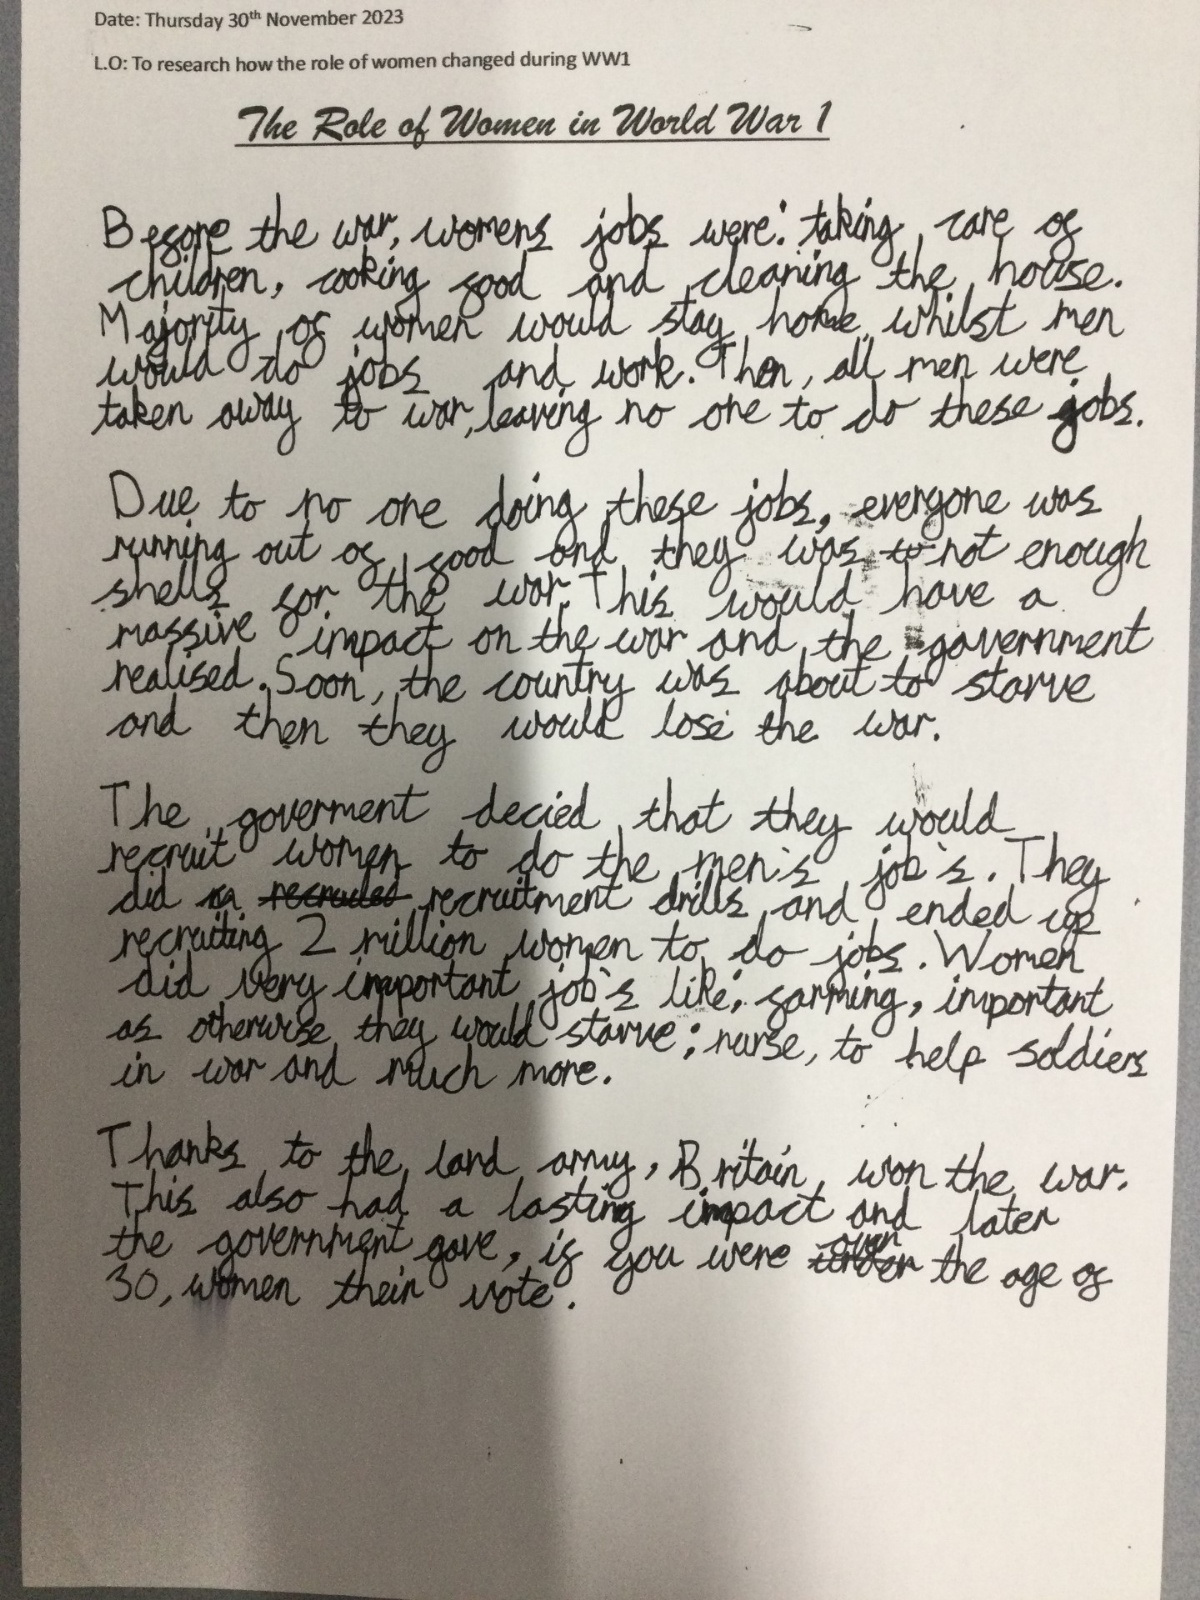 Date: Thursday 30th November 2023
L.O: To research how the role of women changed during WW1
The Role of Women in World War 1
Before the war, womens jobs were: taking care of
children, cooking food and cleaning the house.
Majority of women would stay home whilst men
would do jobs and work. Then, all men were
taken away to war, leaving no one to do these jobs.
Due to no one doing these jobs, everyone was
running out of food and they was to not enough
shells for the war. This would have a
massive impact on the war and the government
realised. Soon, the country was about to starve
and then they would lose the war.
The goverment decied that they would
recruit women to do the men's job's. They
did recruited recruitment drills and ended up
recruiting 2 million women to do jobs. Women
did very important job's like; farming, important
as otherwise they would starve; nurse, to help soldiers
in war and much more.
Thanks to the land army, Britain won the war.
This also had a lasting impact and later
the government gave, if you were under over the age of
30, women their vote.